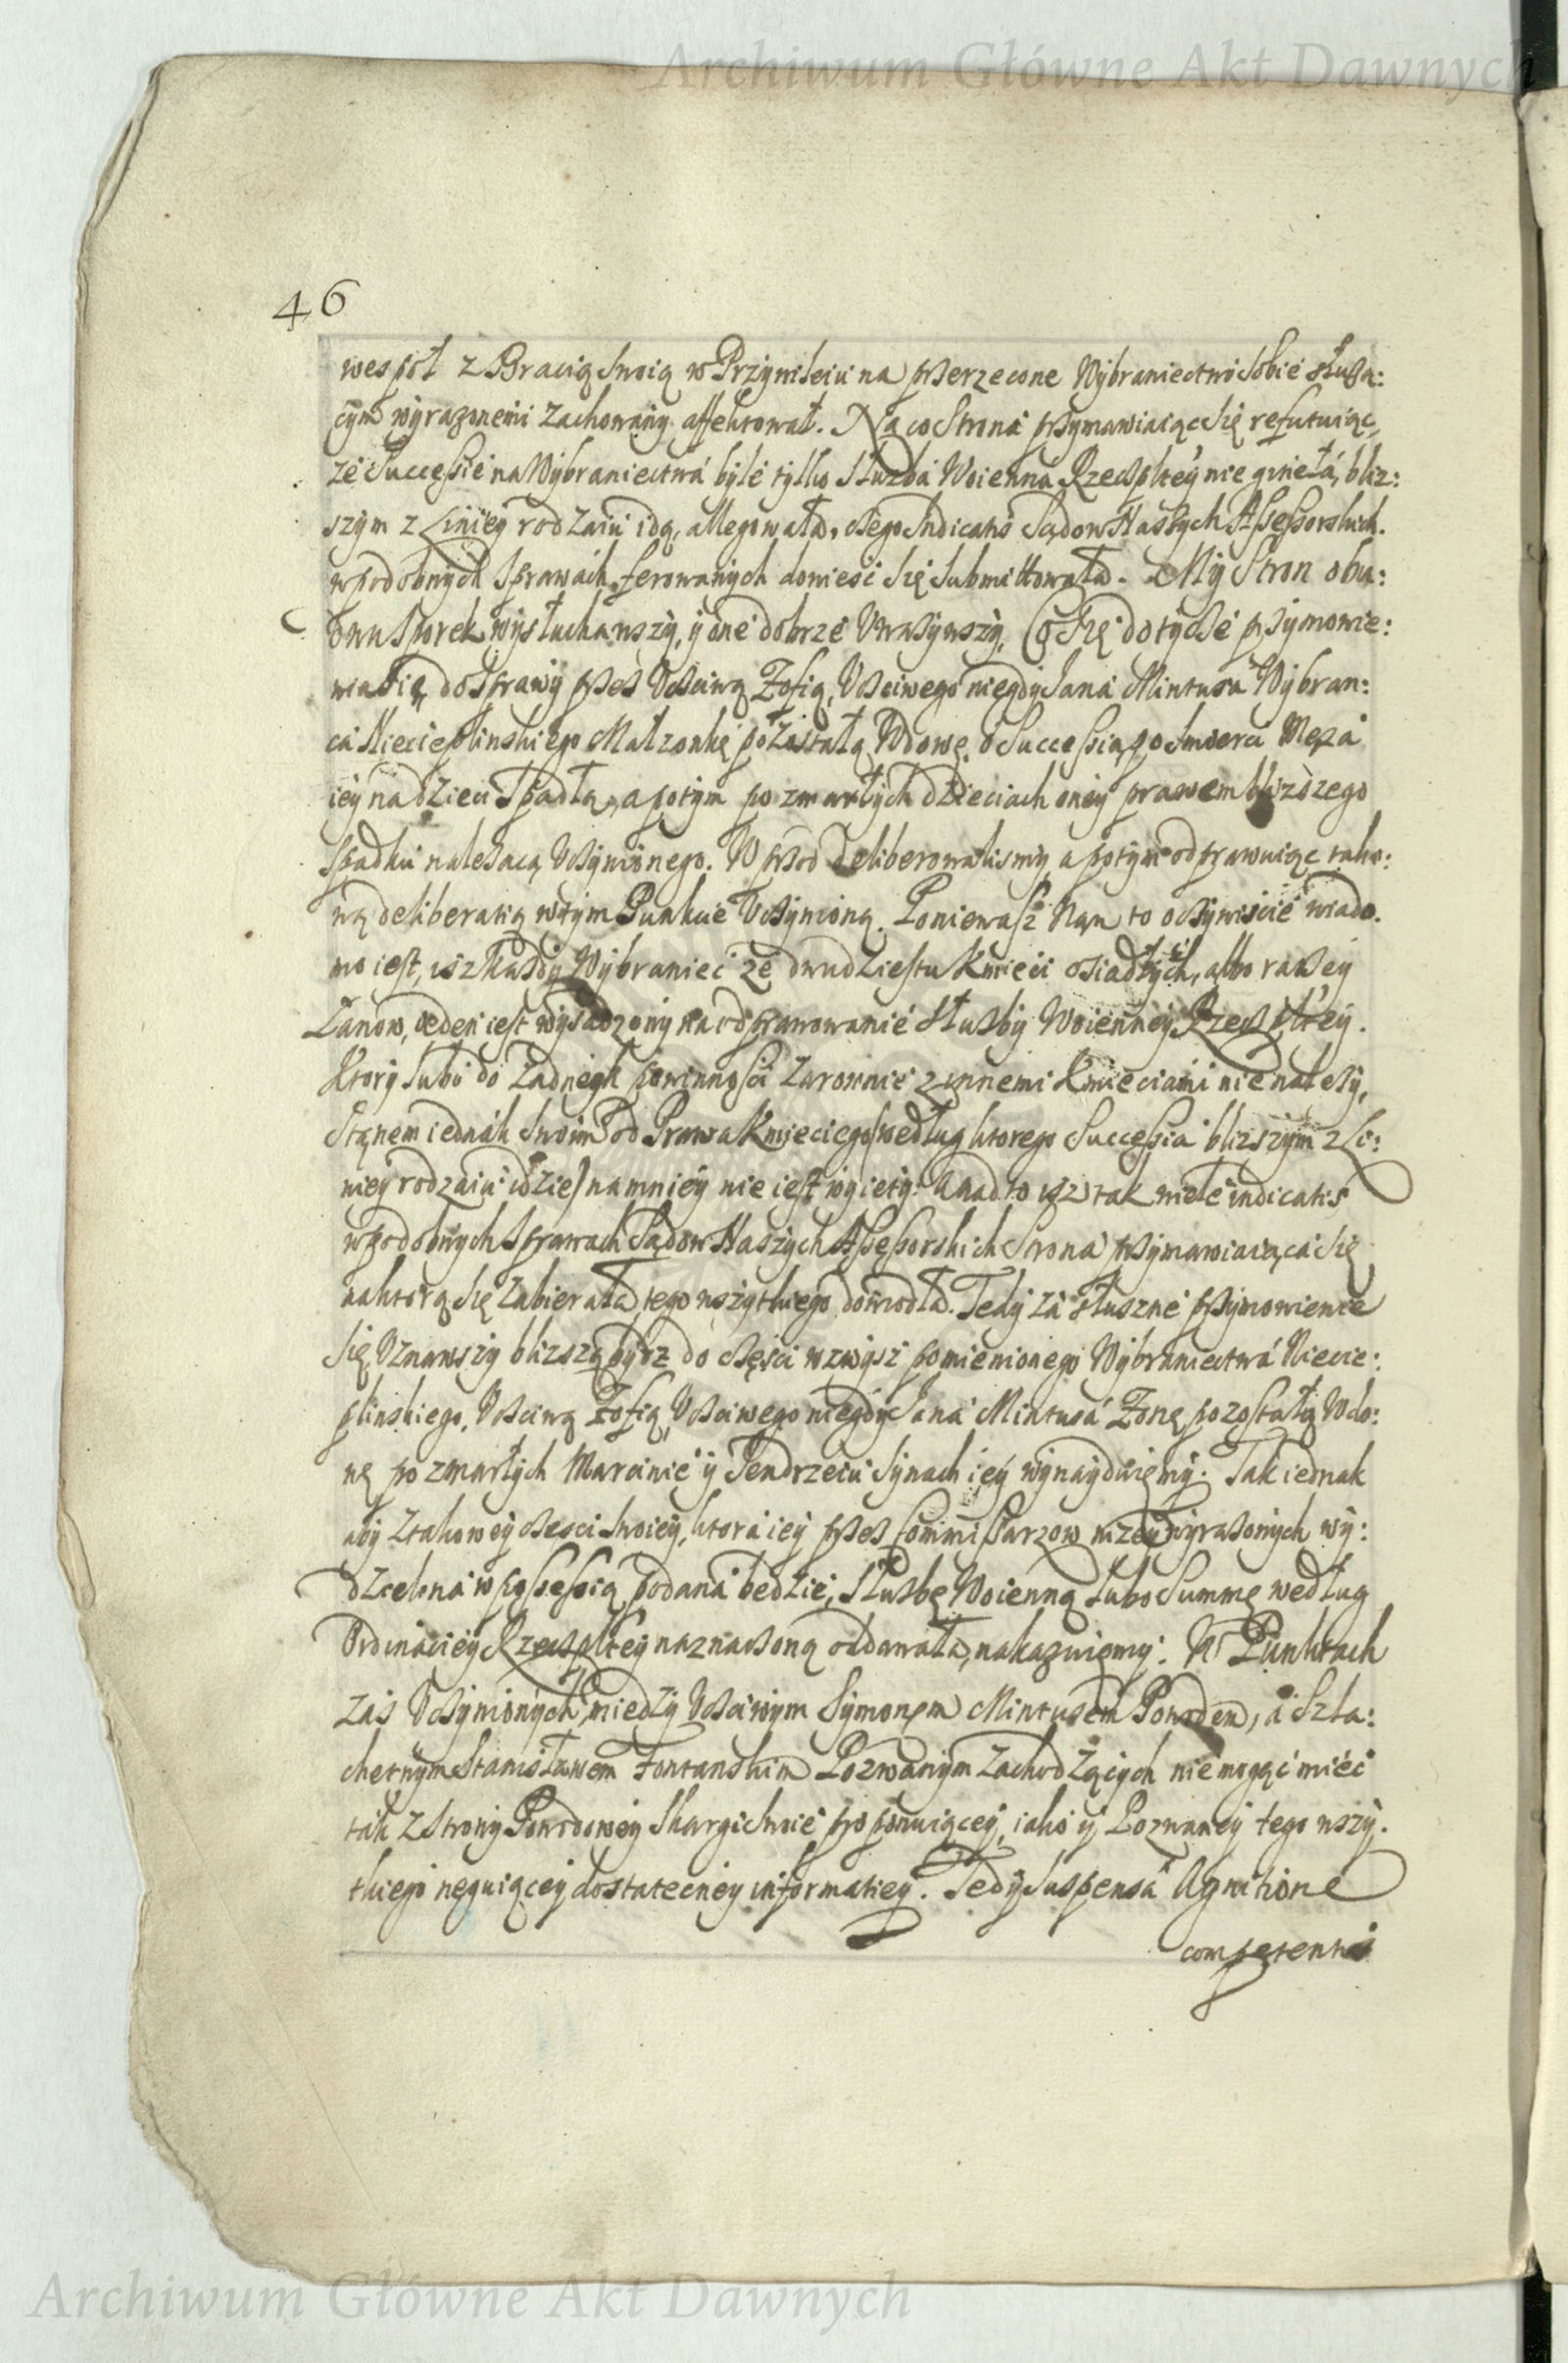 Archiwum Główne Akt Dawnych
46
wespoł z Bracią swoią w Przywileiu na przerzeczone Wybraniectwo sobie służą:
cym wyrazonemi zachowany affektował. Na co Strona przymawiaiąc się refutuiąc,
ze Successie na Wybraniectwá byle tylko służba Woienna Rzeczpltey nie ginełá, bliz:
szym z Liniiey rodzaiu idą, allegowała, czego Indicatis Sądow Naszych Assessorskich.
w podobnych sprawach ferowanych dowiesć się submittowała. My Stron obu:
dwu sporek wysłuchawszy, y one dobrze Uważywszy, Co się dotycze przymowie:
nia się do sprawy przez Uczciwą Zofią, Uczciwego niegdy Jana Mintusa Wybran:
ca Niecieplinskiego Małzonkę pozostałą Wdowę, o Successią po smierci Męża
iey na dzieci spadłą, a potym po zmarłych dzieciach oney prawem blizszego
spadku należącą Uczynionego. W przod deliberowalismy, a potym odprawuiąc tako:
wą deliberatią w tym Punkcie Uczynioną. Poniewasz Nam to oczywiscie wiado.
mo iest, isz kazdy Wybraniec ze dwudziestu Kmieci osiadłych, albo raczey
Łanow, ieden iest wysadzony na odprawowanie służby Woienney Rzeczpltey.
Ktory lubo do zadnych powinnosci zarownie z innemi Kmieciami nie należy,
Stanem iednak swoim od Prawa Kmieciego (według ktorego Successia blizszym z Li:
niey rodzaiu idzie) namniey nie iest wyięty: A nad to isz tak wiele indicatis
w podobnych Sprawach Sądow Naszych Assessorskich Strona przymawiaiąca się
na ktorą się zabierała tego wszytkiego dowodła. Tedy za słuszne przymowienie
się Uznawszy blizszą bydz do częsci wzwysz pomienionego Wybraniectwá Niecie:
plinskiego, Uczciwą Zofią, Uczciwego niegdy Jana Mintusá Zonę pozostałą Wdo:
wę po zmarłych Marcinie y Jendrzeiu synach iey wynayduiemy. Tak iednak
aby z takowey czesci swoiey, ktora iey przez Commissarzow nizey wyrazonych wy:
dzielona w possessią podana bedzie, Służbę Woienną lubo Summę według
Ordinaciey Rzeczpltey naznaczoną oddawała, nakazuiemy: W Punktach
zaś Uczynionych miedzy Uczciwym Symonem Mintusem Powodem, a Szla:
chetnym Stanisławem Fontanskim Pozwanym zachodzących nie mogąc mieć
tak z strony Powodowey skargi swoie proponuiącey, iako y Pozwaney tego wszy.
tkiego neguiącey dostateczney informatiey. Tedy suspensa Agnitione
competenti
Archiwum Główne Akt Dawnych